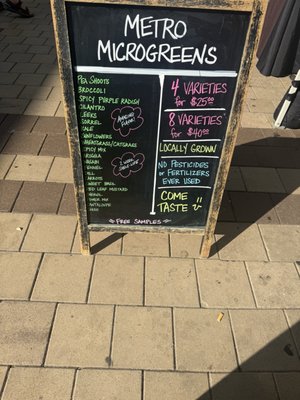 METRO
MICROGREENS
PEA SHOOTS
BROCCOLI
SPICY PURPLE RADISH
CILANTRO
LEEKS
SORREL
KALE
SUNFLOWERS
WHEATGRASS/CATGRASS
SPICY MIX
ARUGULA
FENNEL
DILL
CARROT
SWEET BASIL
RED LEAF MUSTARD
CHERVIL
AMAZING
FLAVOR!
2 WEEK
SHELF-LIFE
4 VARIETIES
for $25.00
8 VARIETIES
for $40.00
LOCALLY GROWN
NO PESTICIDES
or FERTILIZERS
EVER USED
COME
TASTE
FREE SAMPLES